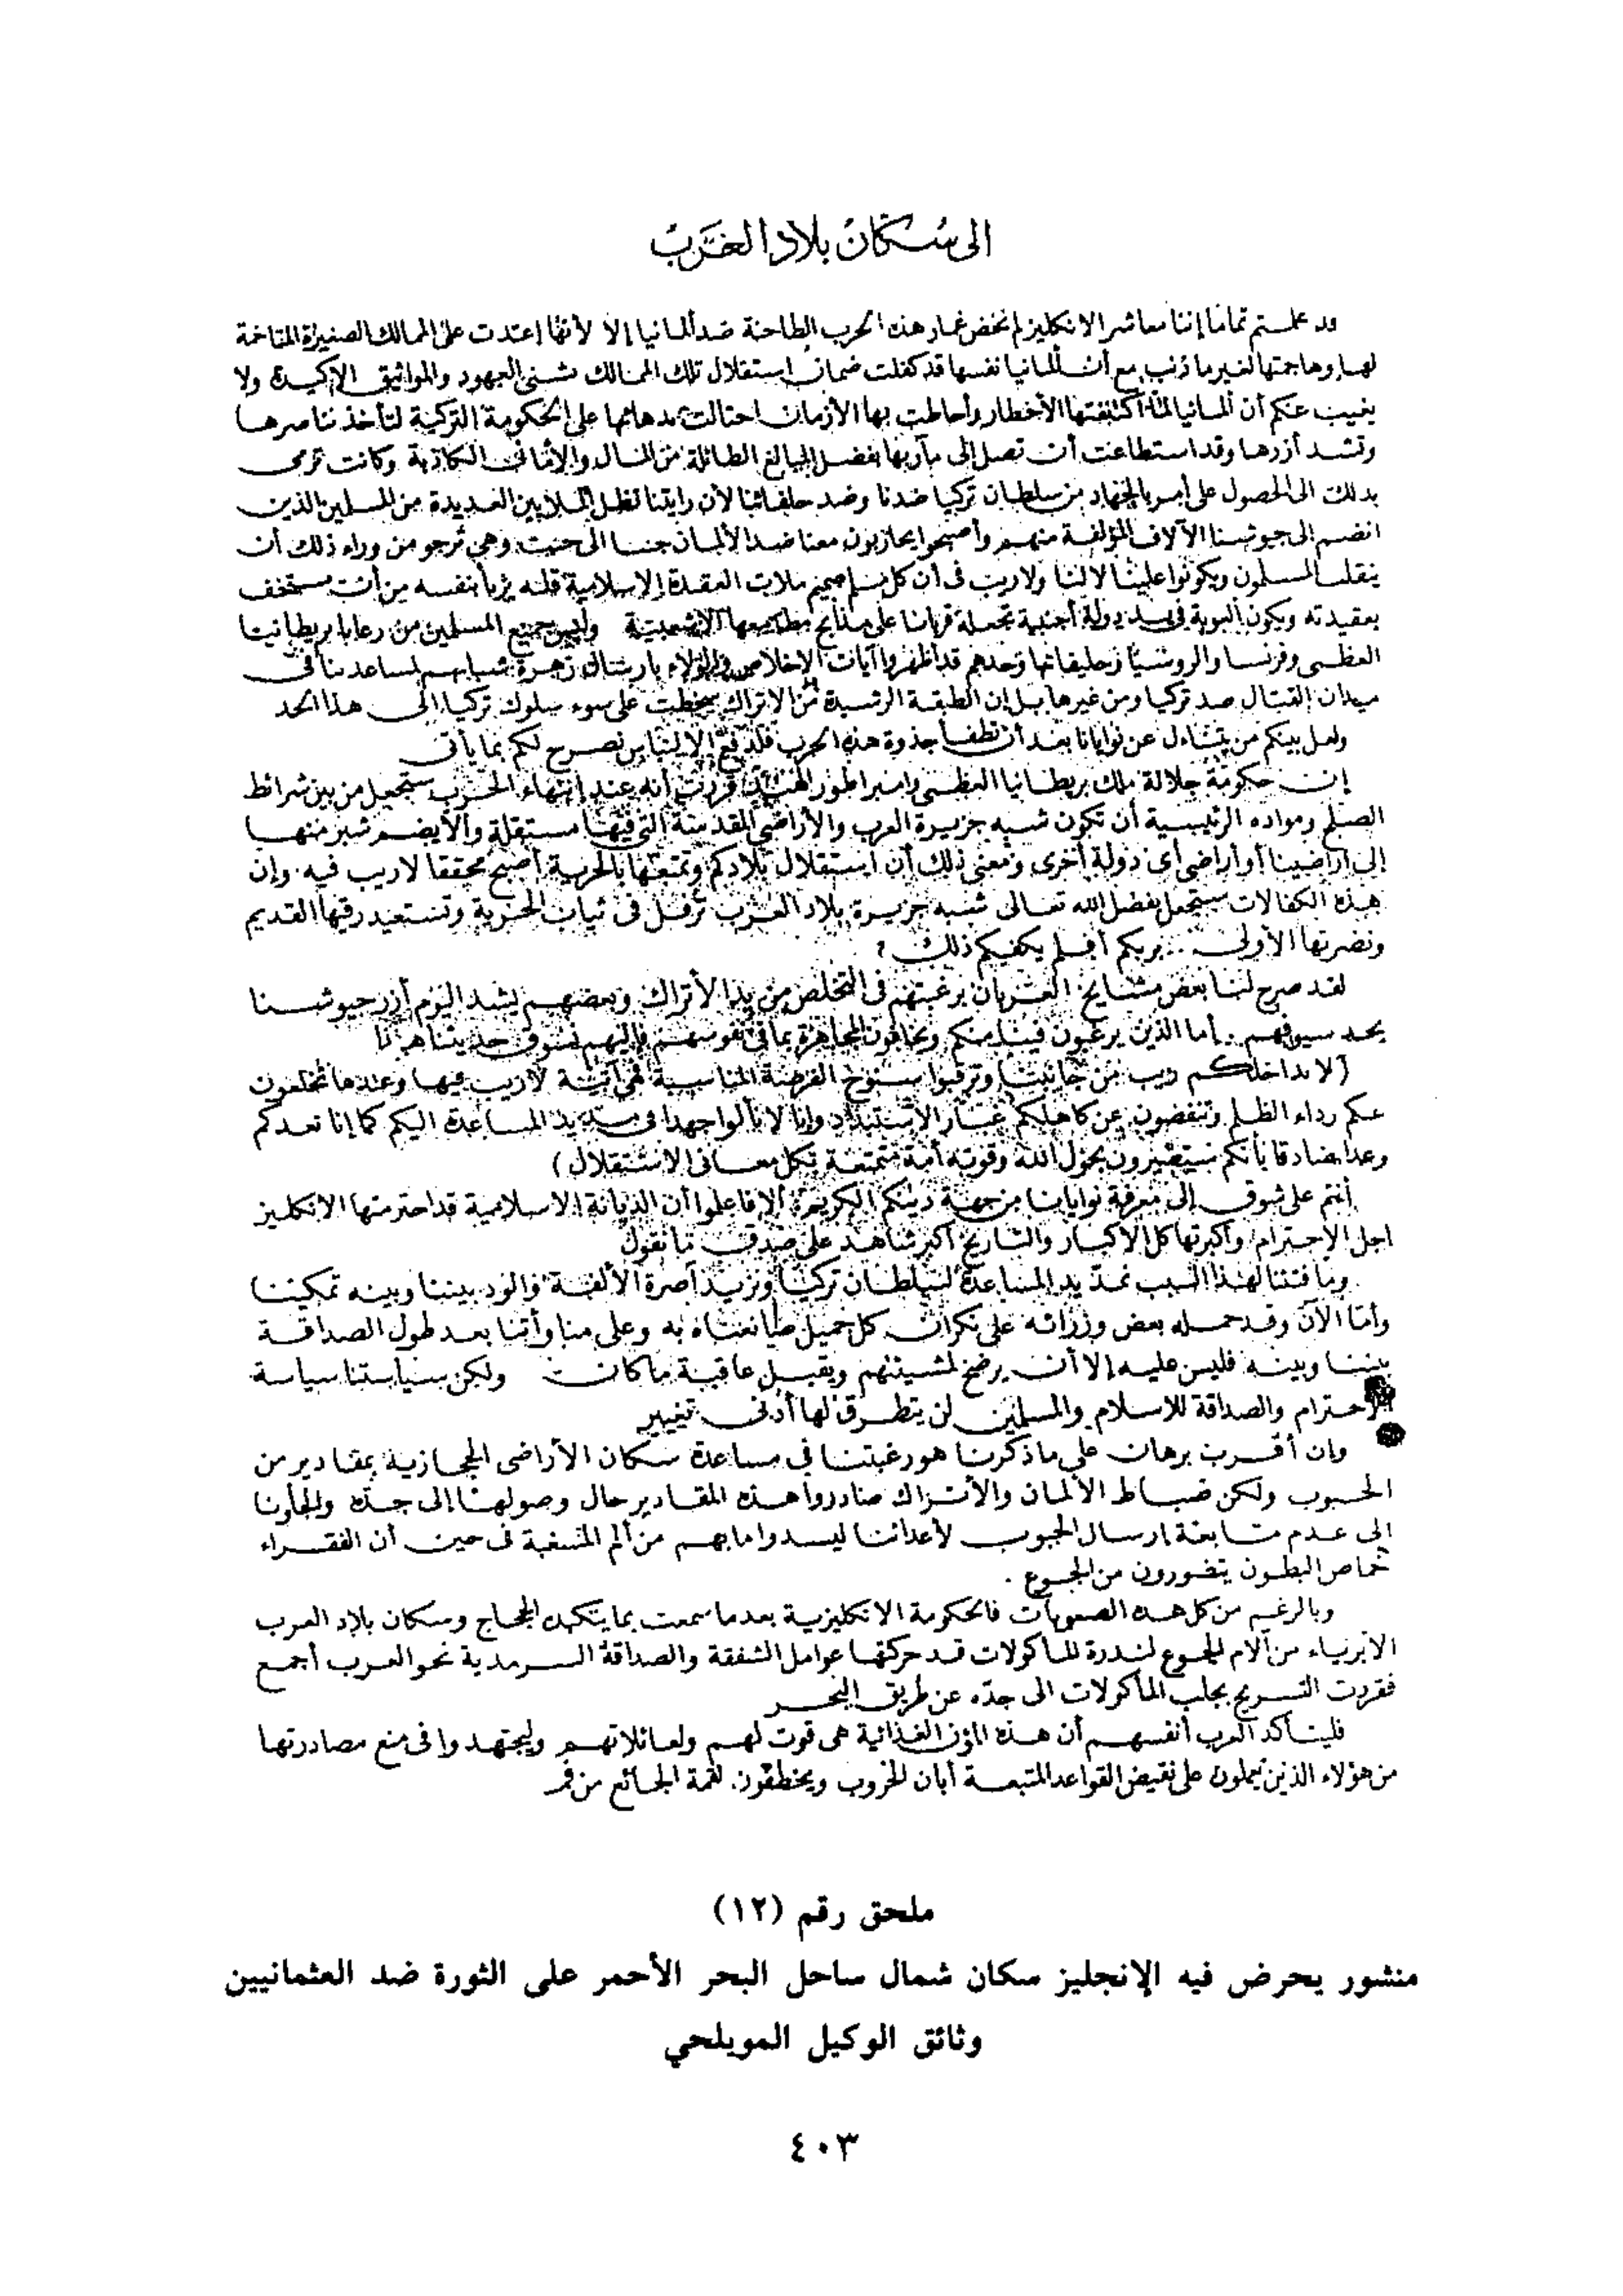 الى سكان بلاد العرب
قد علمتم تماما إننا معاشر الانكليز لم نخض غمار هذه الحرب الطاحنة ضد ألمانيا إلا لأنها إعتدت على الممالك الصغيرة المتاخمة
لها وهاجمتها لغير ما ذنب مع أن ألمانيا نفسها قد كفلت ضمان إستقلال تلك الممالك بشتى العهود والمواثيق الأكيدة ولا
يغيب عنكم أن ألمانيا لما أكتنفتها الأخطار وأحاطت بها الأزمان احتالت بدهائها على الحكومة التركية لتأخذ بناصرها
وتشد أزرها وقد استطاعت أن تصل إلى مآربها بفضل المبالغ الطائلة من المال والأماني الكاذبة وكانت ترمى
بذلك الى الحصول على أمر بالجهاد من سلطان تركيا ضدنا وضد حلفائنا لأن رايتنا تظل الملايين العديدة من المسلمين الذين
انضم إلى جيوشنا الآلاف المؤلفة منهم وأصبحوا يحاربون معنا ضد الألمان جنبا الى جنب وهي ترجو من وراء ذلك أن
ينقلب المسلمون ويكونوا علينا لا لنا ولا ريب فى أن كل مسلم صميم ملأت العقيدة الإسلامية قلبه يربأ بنفسه من أن يستخف
بعقيدته ويكون ألعوبة فى يد دولة أجنبية تجعله قربانا على مذابح مطامعها الأشعبية وليس جميع المسلمين من رعايا بريطانيا
العظمى وفرنسا والروسيا وحليفاتها وحدهم قد أظهروا آيات الإخلاص والولاء بإرسال زهرة شبابهم لمساعدتنا فى
ميدان القتال ضد تركيا ومن غيرها بل إن الطبقة الرشيدة من الاتراك سخطت على سوء سلوك تركيا إلى هذا الحد
ولعل بينكم من يتساءل عن نوايانا بعد أن تطفأ جذوة هذه الحرب فلا يسع إلا أن نصرح لكم بما يأتى
إن حكومة جلالة ملك بريطانيا العظمى وإمبراطور الهند قررت أنه عند إنتهاء الحرب ستجعل من بين شرائط
الصلح ومواده الرئيسية أن تكون شبه جزيرة العرب والأراضى المقدسة التى فيها مستقلة والا يضم شبر منها
إلى أراضينا أو أراضى أى دولة أخرى ومعنى ذلك أن إستقلال بلادكم وتمتعها بالحرية أصبح محققا لا ريب فيه وإن
هذه الكفالات ستجعل بفضل الله تعالى شبه جزيرة بلاد العرب ترفل فى ثياب الحرية وتستعيد رقيها القديم
ونضرتها الأولى .. بربكم أفلم يكفيكم ذلك ؟
لقد صرح لنا بعض مشايخ العربان برغبتهم فى التخلص من يد الأتراك وبعضهم يشد اليوم أزر جيوشنا
بحد سيوفهم . أما الذين يرغبون فينا منكم ويخافون المجاهرة بما فى نفوسهم فإليهم نسوق حديثنا هذا
( لا يداخلكم ريب من جانبنا وترقبوا سنوح الفرصة المناسبة فهى آتية لا ريب فيها وعندها تخلعون
عنكم رداء الظلم وتنفضون عن كاهلكم غبار الاستبداد وإنا لا نألو جهدا فى مد يد المساعدة اليكم كما إنا نعدكم
وعدا صادقا بأنكم ستصيرون بحول الله وقوته أمة متمتعة بكل معانى الاستقلال )
أنتم على شوق إلى معرفة نوايانا من جهة دينكم الكريم ألا فاعلموا أن الديانة الاسلامية قد احترمتها الانكليز
اجل الإحترام وأكبرتها كل الاكبار والتاريخ أكبر شاهد على صدق ما نقول
وما فتئنا لهذا السبب نمد يد المساعدة لسلطان تركيا ونزيد آصرة الألفة والود بيننا وبينه تمكينا
وأما الآن وقد حمله بعض وزرائه على نكران كل جميل صانعناه به وعلى مناوأتنا بعد طول الصداقة
بيننا وبينه فليس عليه إلا أن يرضخ لمشيئتهم ويقبل عاقبة ما كانت ولكن سياستنا سياسة
الإحترام والصداقة للاسلام والمسلمين لن يتطرق لها أدنى تغيير
وان أقرب برهان على ما ذكرنا هو رغبتنا في مساعدة سكان الأراضى الحجازية بمقادير من
الحبوب ولكن ضباط الألمان والأتراك صادروا هذه المقادير حال وصولها إلى جدّه والجأونا
إلى عدم متابعة إرسال الحبوب لأعدائنا ليسدوا ما بهم من ألم المسغبة فى حين أن الفقراء
خماص البطون يتضورون من الجوع .
وبالرغم من كل هذه الصعوبات فالحكومة الانكليزية بعدما سمعت بما يتكبده الحجاج وسكان بلاد العرب
الابرياء من آلام الجوع لندرة المأكولات قد حركتها عوامل الشفقة والصداقة السرمدية نحو العرب أجمع
فقررت التسريح بجلب المأكولات الى جدّه عن طريق البحر
فليتأكد العرب أنفسهم أن هذه المؤن الغذائية هى قوت لهم ولعائلاتهم وليجتهدوا فى منع مصادرتها
من هؤلاء الذين يعملون على نقيض القواعد المتبعة أبان الحروب ويخطفون لقمة الجائع من فمه
ملحق رقم (١٢)
منشور يحرض فيه الإنجليز سكان شمال ساحل البحر الأحمر على الثورة ضد العثمانيين
وثائق الوكيل المويلحي
٤٠٣